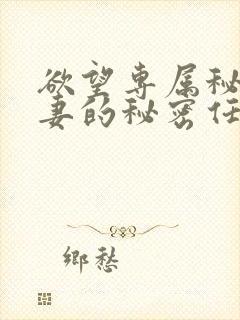 欲望专属秘
妻的秘密任
鄉愁